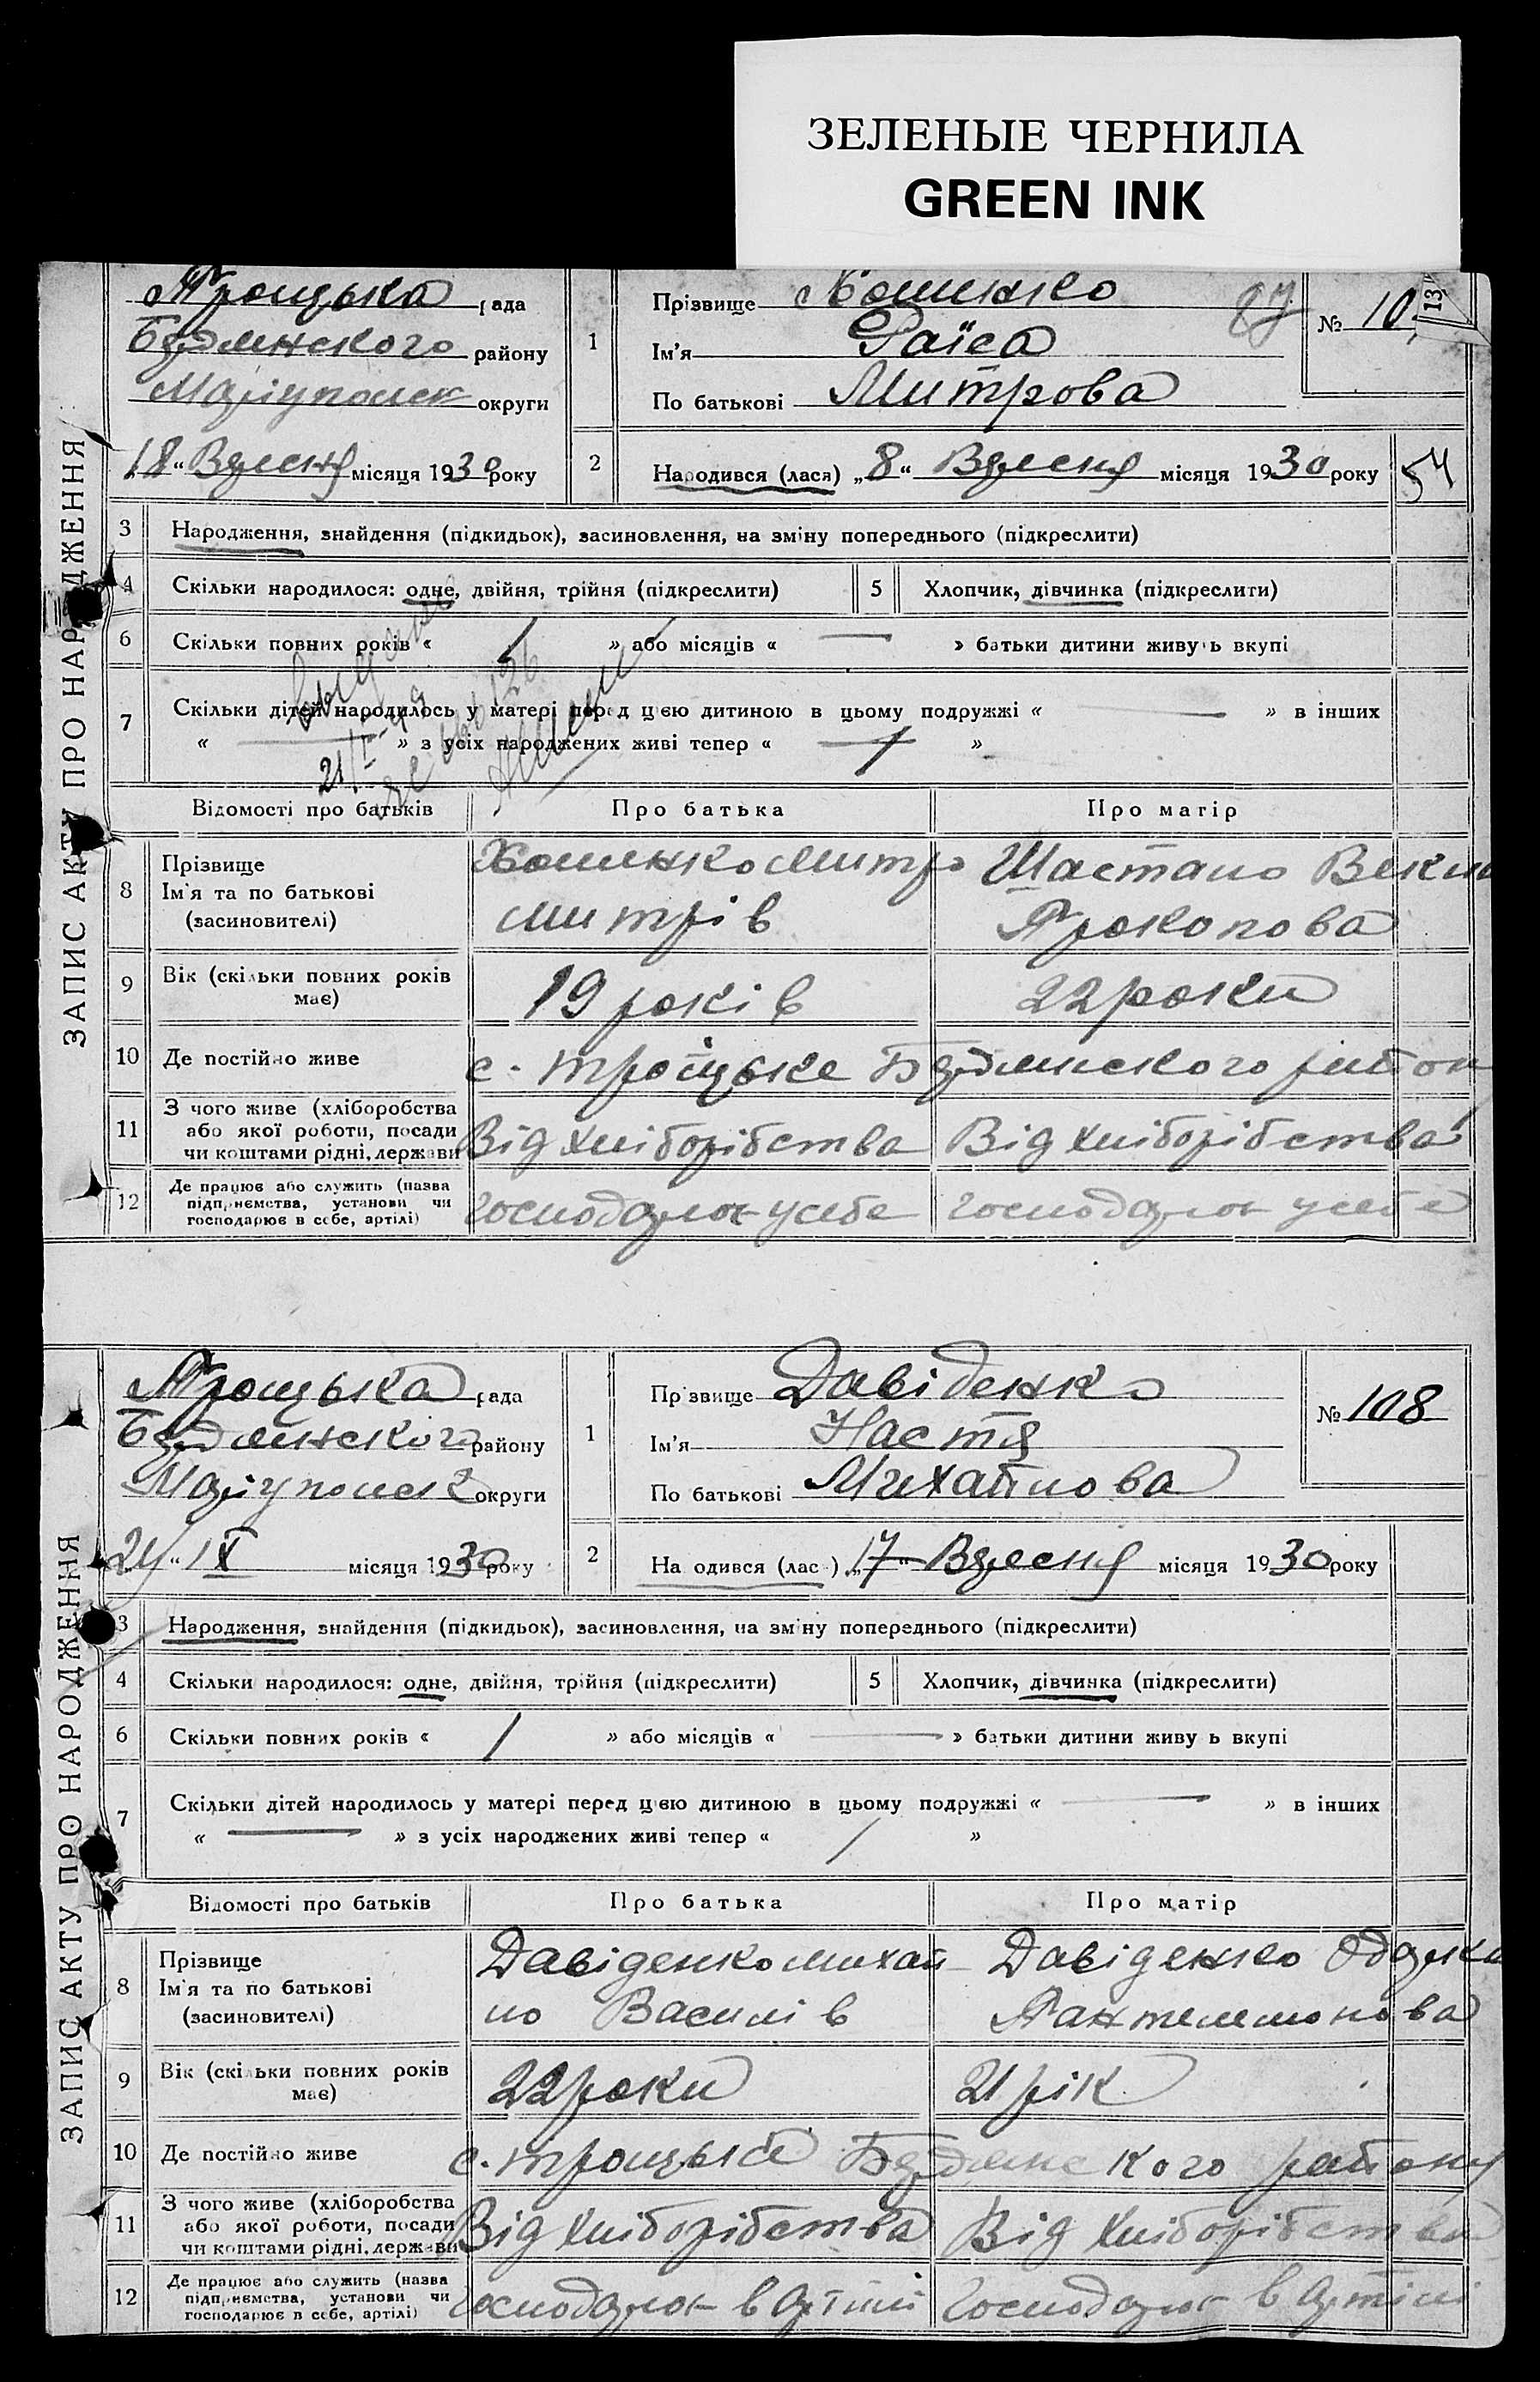 ЗЕЛЕНЫЕ ЧЕРНИЛА
GREEN INK
ЗАПИС АКТУ ПРО НАРОДЖЕННЯ
Троцька рада
району
округи
18 Вересня місяця 1930 року
1
Прізвище Хоменко
Ім'я Раїса
По батькові Митрова
87
№ 10
13
2
Народився (лася) „8“ Вересня місяця 1930 року
54
3 Народження, знайдення (підкидьок), засиновлення, на зміну попереднього (підкреслити)
4 Скільки народилося: одне, двійня, трійня (підкреслити) 5 Хлопчик, дівчинка (підкреслити)
6 Скільки повних років « 1 » або місяців « — » батьки дитини живуть вкупі
7 Скільки дітей народилось у матері перед цією дитиною в цьому подружжі « — » в інших
« — » з усіх народжених живі тепер « 1 »
Відомості про батьків Про батька Про матір
8 Прізвище
Ім'я та по батькові
(засиновителі)
Хоменко Митро
Митрів
Прокопова
9 Вік (скільки повних років
має)
19 років 22 роки
10 Де постійно живе с. Троцьке
11 З чого живе (хліборобства
або якої роботи, посади
чи коштами рідні, держави
Від хліборобства Від хліборобства
12 Де працює або служить (назва
підприємства, установи чи
господарює в себе, артілі)
у себе у себе
ЗАПИС АКТУ ПРО НАРОДЖЕННЯ
Троцька рада
району
округи
24 “ IX місяця 1930 року
1
Прізвище Давіденко
Ім'я Настя
По батькові Михайлова
№ 108
2
Народився (лась) „17“ Вересня місяця 1930 року
3 Народження, знайдення (підкидьок), засиновлення, на зміну попереднього (підкреслити)
4 Скільки народилося: одне, двійня, трійня (підкреслити) 5 Хлопчик, дівчинка (підкреслити)
6 Скільки повних років « 1 » або місяців « — » батьки дитини живуть вкупі
7 Скільки дітей народилось у матері перед цією дитиною в цьому подружжі « — » в інших
« — » з усіх народжених живі тепер « / »
Відомості про батьків Про батька Про матір
8 Прізвище
Ім'я та по батькові
(засиновителі)
Давіденко Михай- Давіденко Одарка
ло Василів Пантелемонова
9 Вік (скільки повних років
має)
22 роки 21 рік
10 Де постійно живе с. Троцьке
11 З чого живе (хліборобства
або якої роботи, посади
чи коштами рідні, держави
Від хліборобства Від хліборобства
12 Де працює або служить (назва
підприємства, установи чи
господарює в себе, артілі)
в артілі в артілі